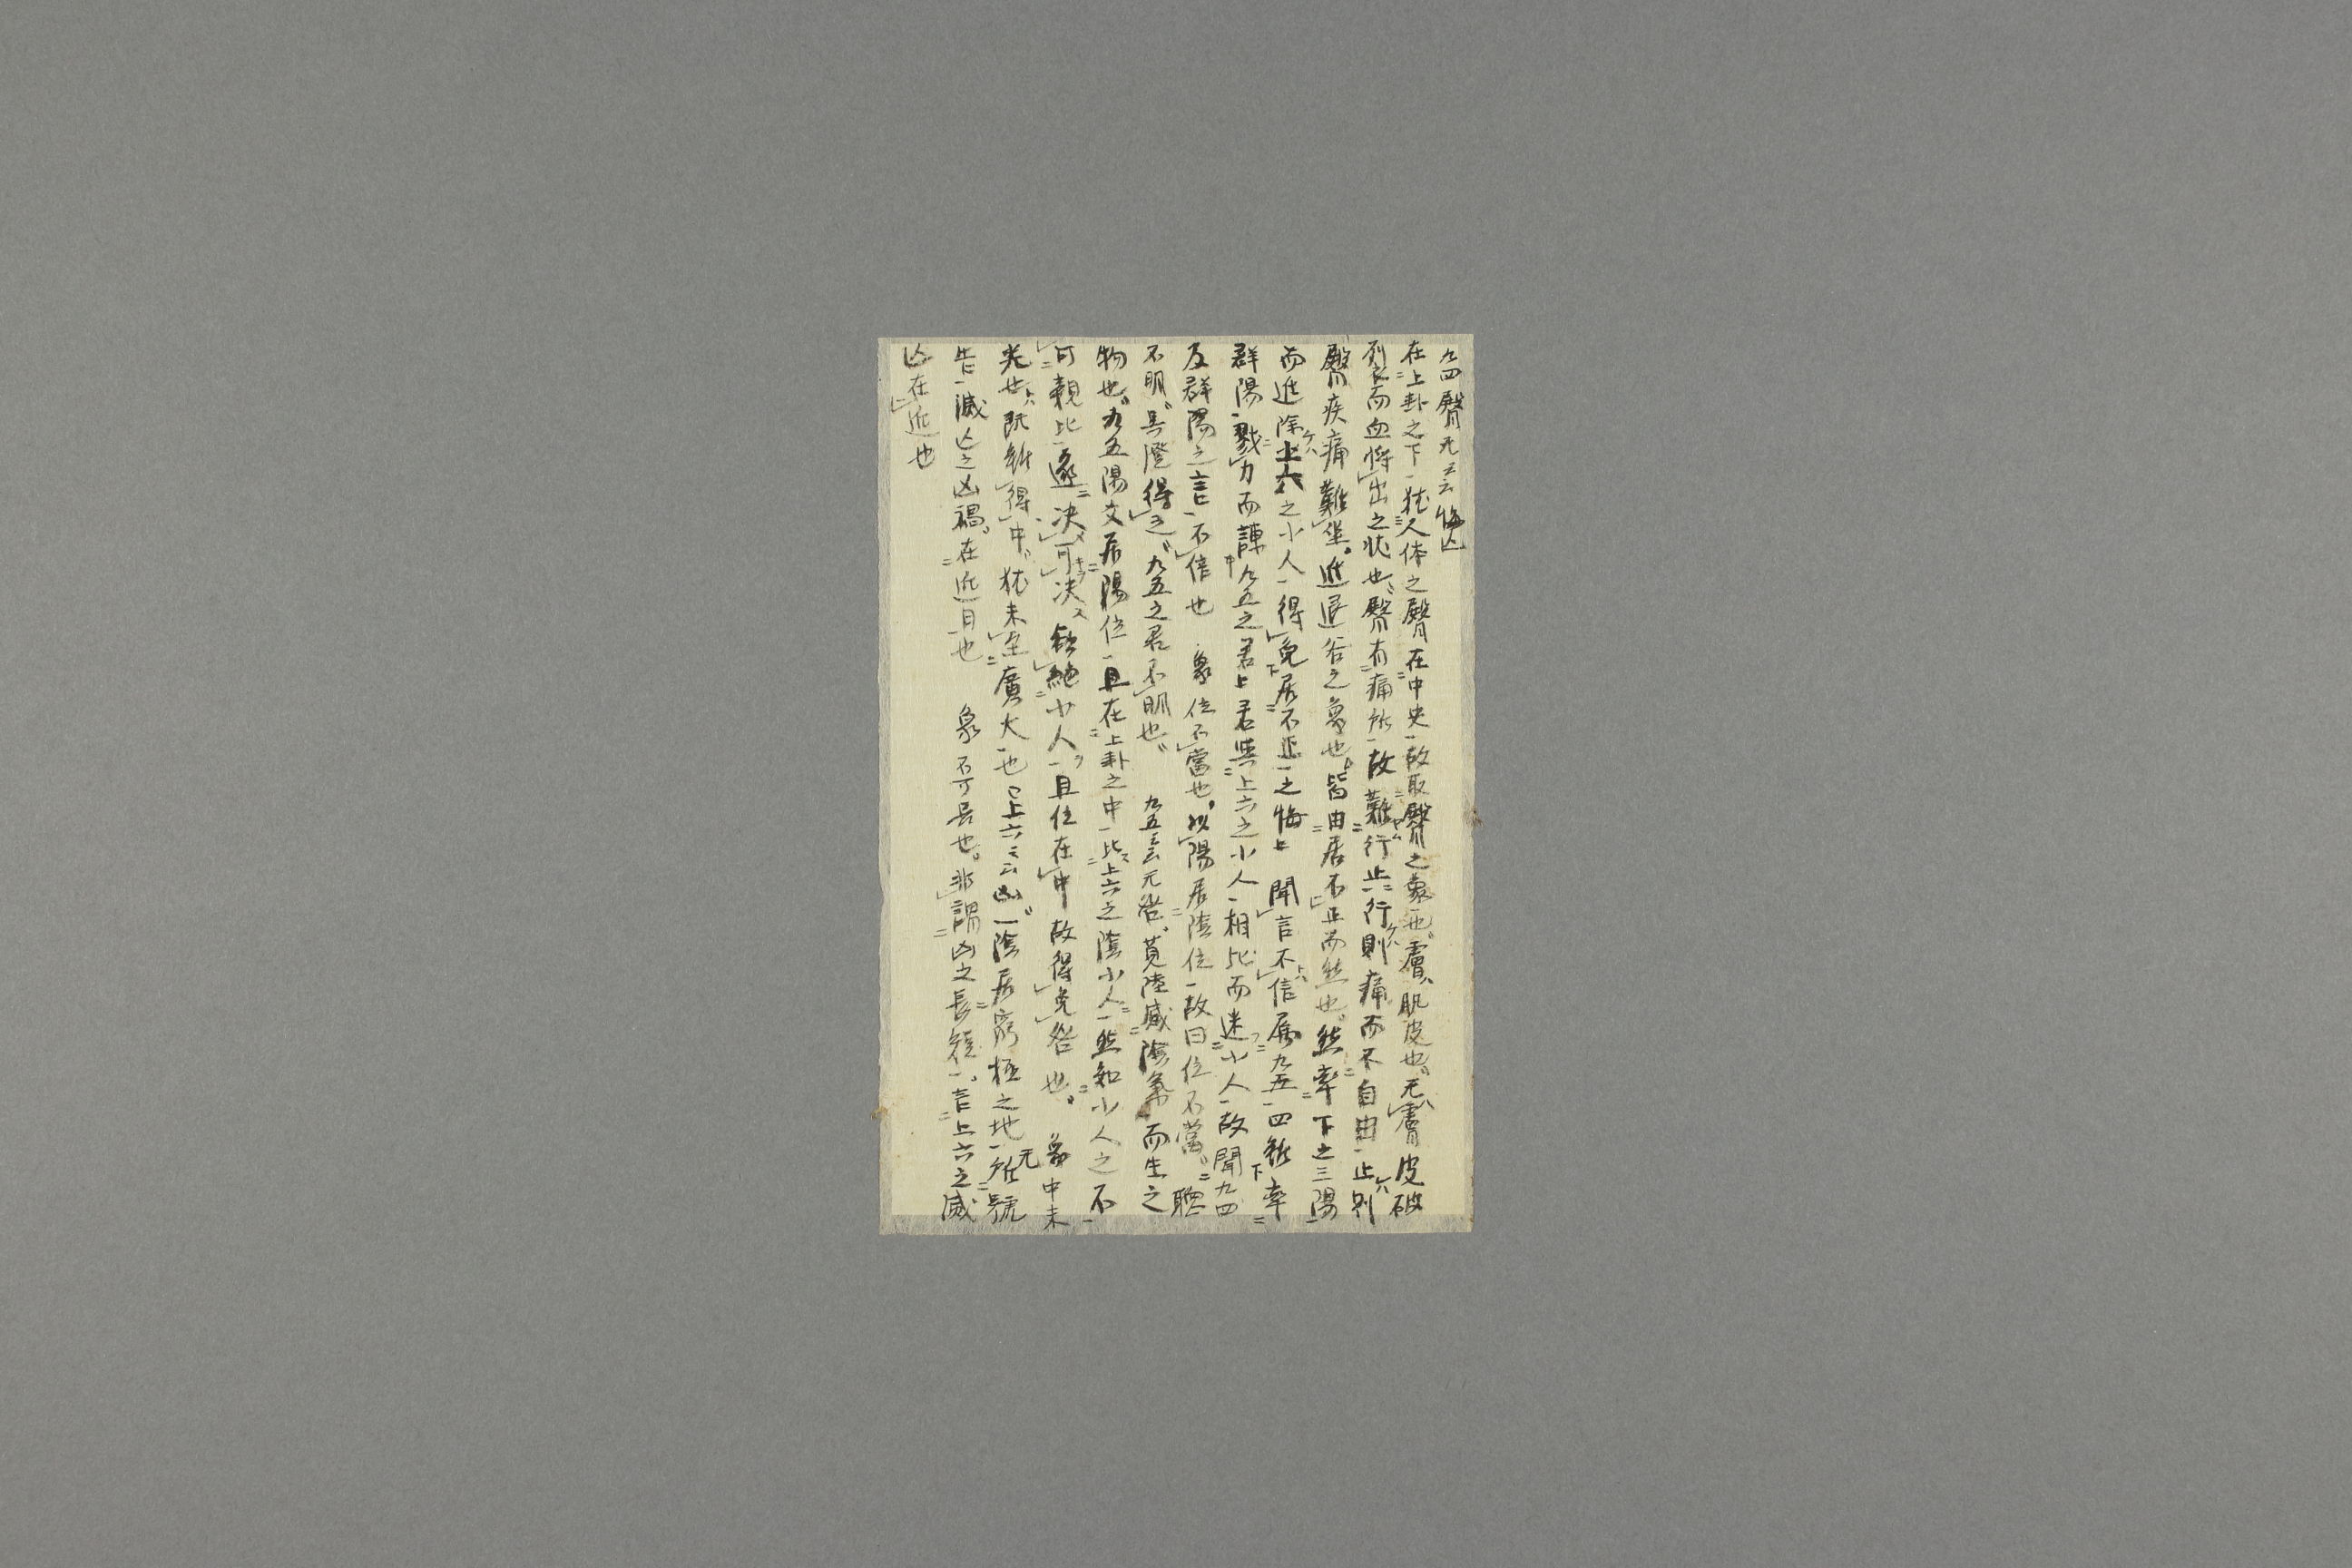 九四臀无云云悔亡
在上卦之下猶人体之臀在中央故取臀之象也膚肌皮也无膚皮破
裂而血將出之状也臀有痛所故難行止行則痛而不自由止則
臀疾痛難坐進退谷之象也皆由居不正而然也然率下之三陽
而進除上六之小人得免居不正之悔 聞言不信属九五四雖率
群陽戮力而諫九五之君君與上六之小人相比而迷小人故聞九四
及群陽之言不信也 象位不當也以陽居陰位故曰位不當聰
不明吳澄得之九五之君不明也 九五云云无咎莧陸感陰氣而生之
物也九五陽爻居陽位且在上卦之中比上六之陰小人然知小人之不
可親比遂決可決 絶小人且位在中故得免咎也 象中未
光也既雖得中猶未至廣大也 上六云云凶一陰居窮極之地无所號
告滅亡之凶禍在近日也 象不可長也非謂凶之長短言上六之滅
亡在近也